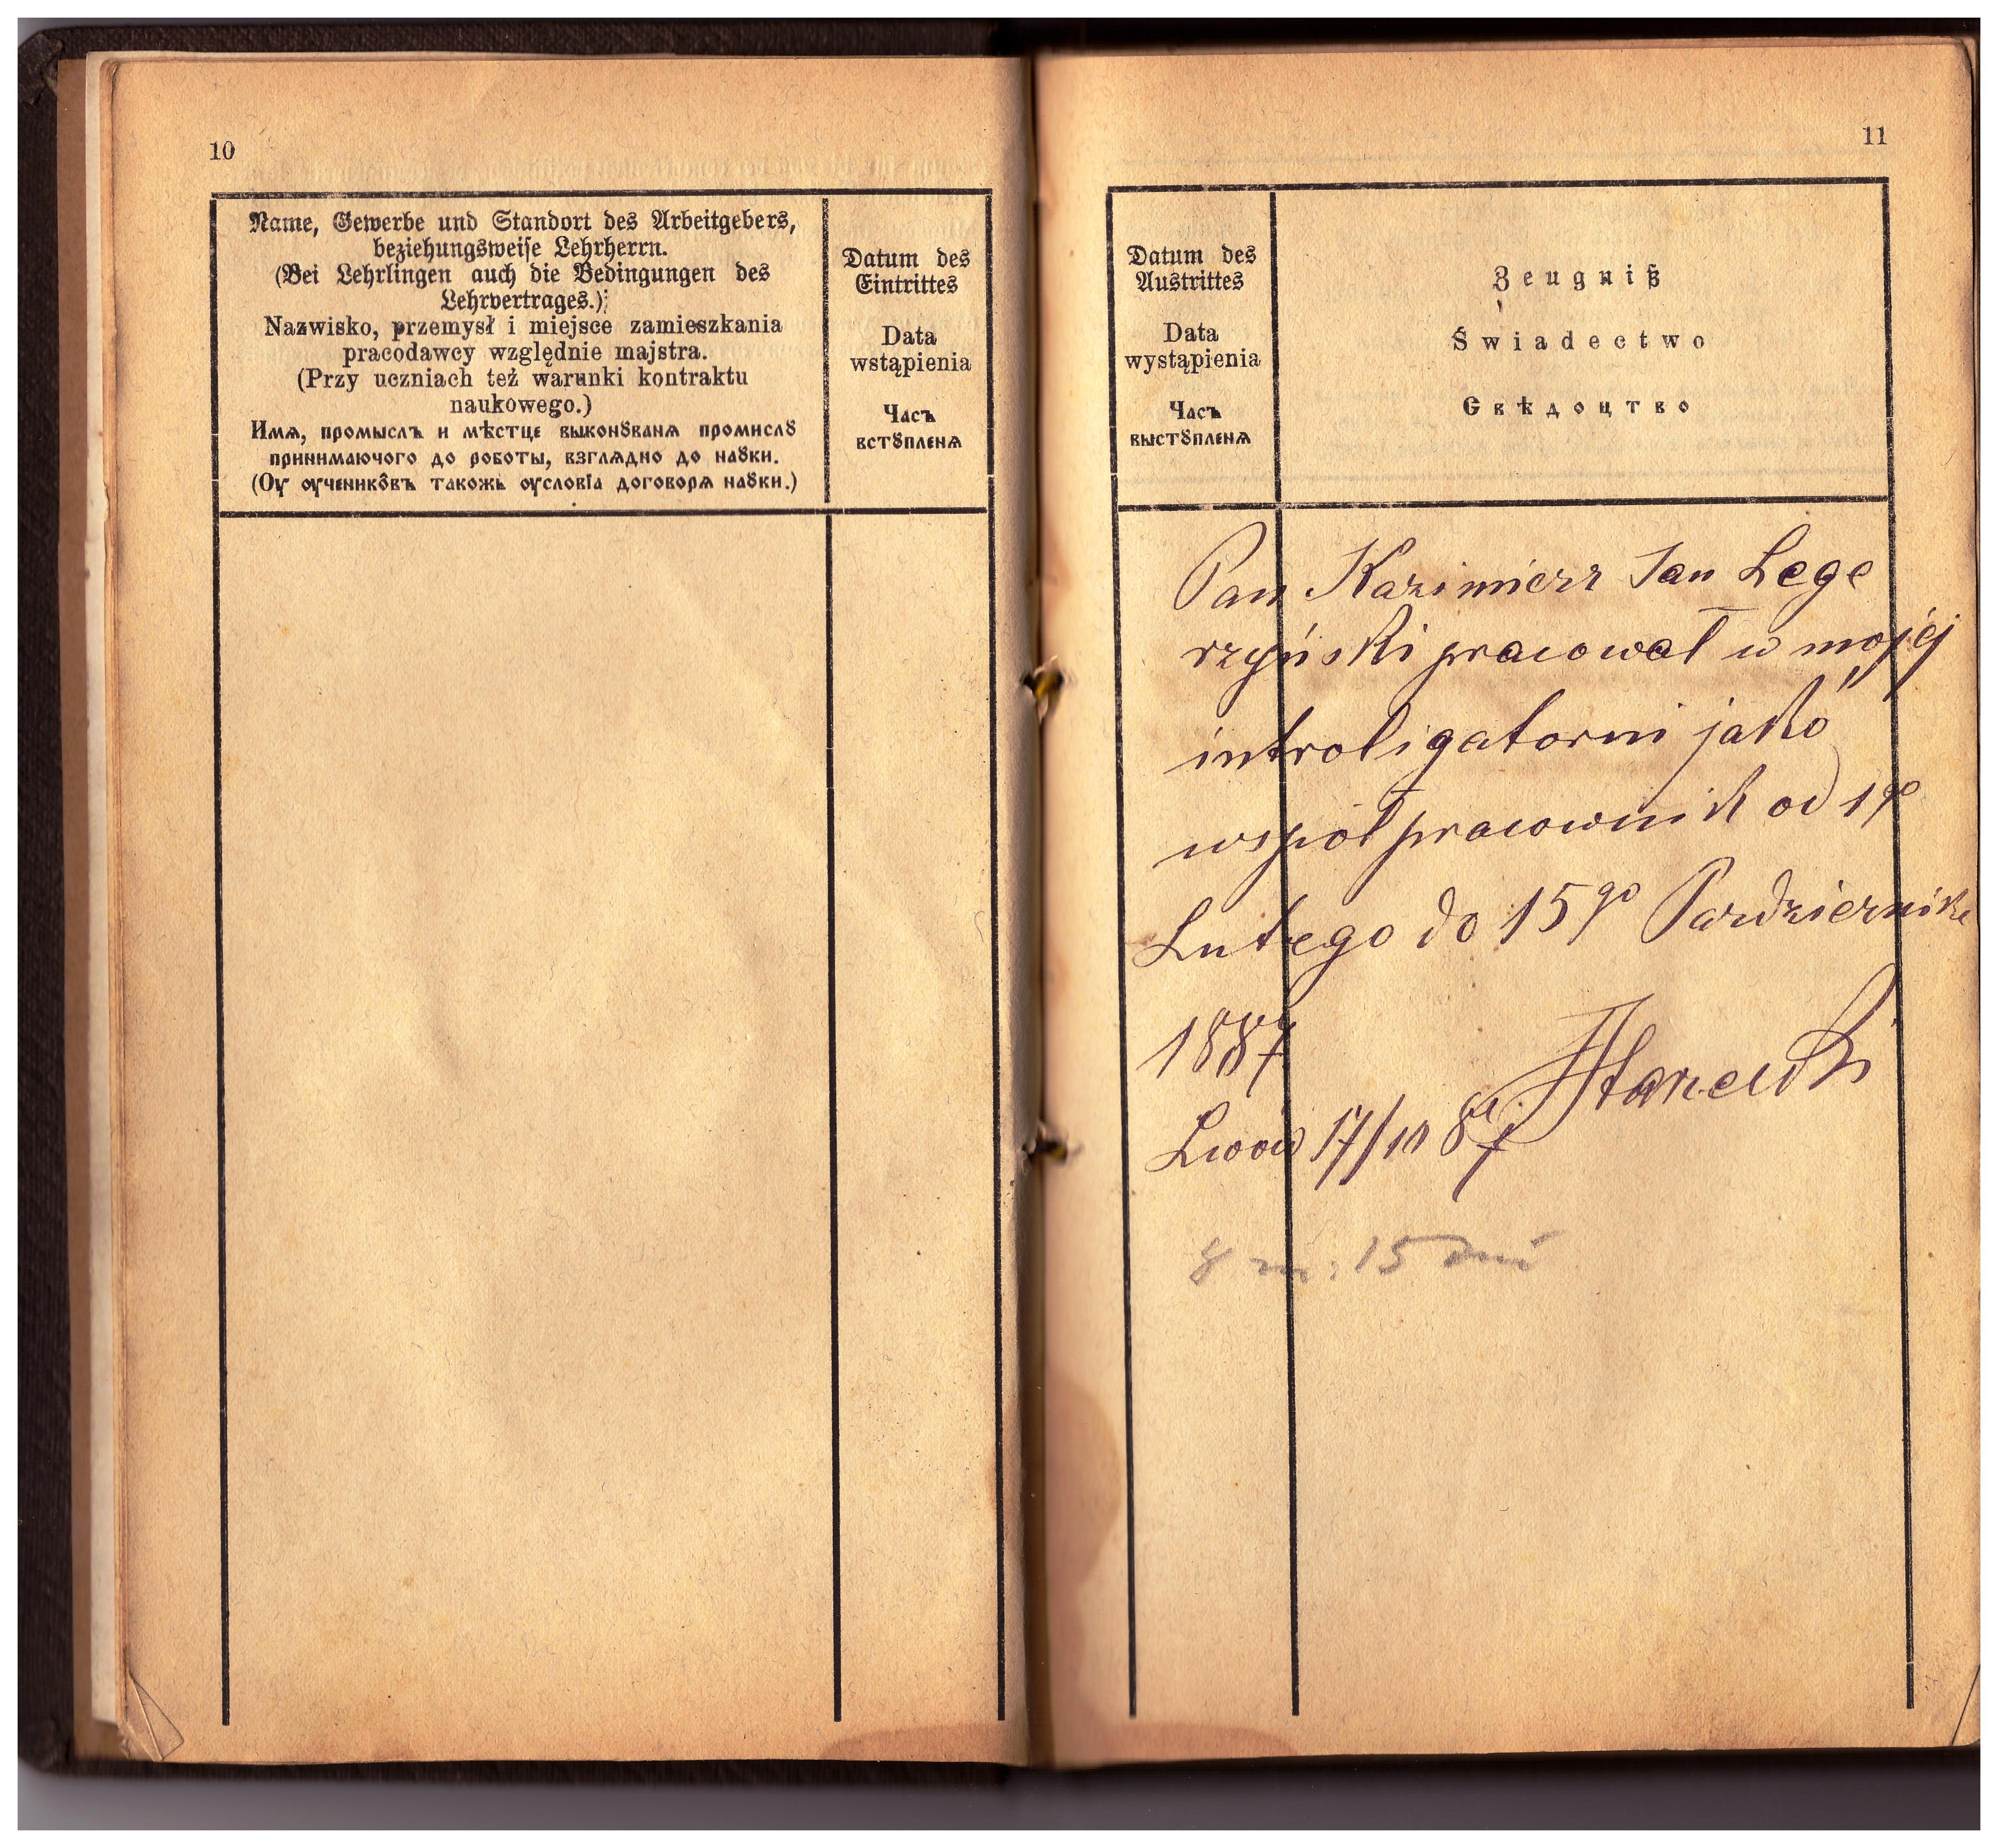 10
Name, Gewerbe und Standort des Arbeitgebers,
beziehungsweise Lehrherrn.
(Bei Lehrlingen auch die Bedingungen des
Lehrvertrages.)
Nazwisko, przemysł i miejsce zamieszkania
pracodawcy względnie majstra.
(Przy uczniach też warunki kontraktu
naukowego.)
Имѧ, промыслъ и мѣстце выконꙋванѧ промислꙋ
принимаючого до роботы, взглѧдно до наꙋки.
(Оу оучеників̂ъ такожь оусловїа договорѧ наꙋки.)
Datum des
Eintrittes
Data
wstąpienia
Часъ
встꙋпленѧ
11
Datum des
Austrittes
Data
wystąpienia
Часъ
выстꙋпленѧ
Zeugniß
Świadectwo
Свѣдоцтво
Pan Kazimierz Jan Lege
rzyński pracował w mojéj
introligatorni jako
współpracownik od 1go
Lutego do 15go Pazdziernika
1887
Lwów 17/10 87
8 m: 15 dni